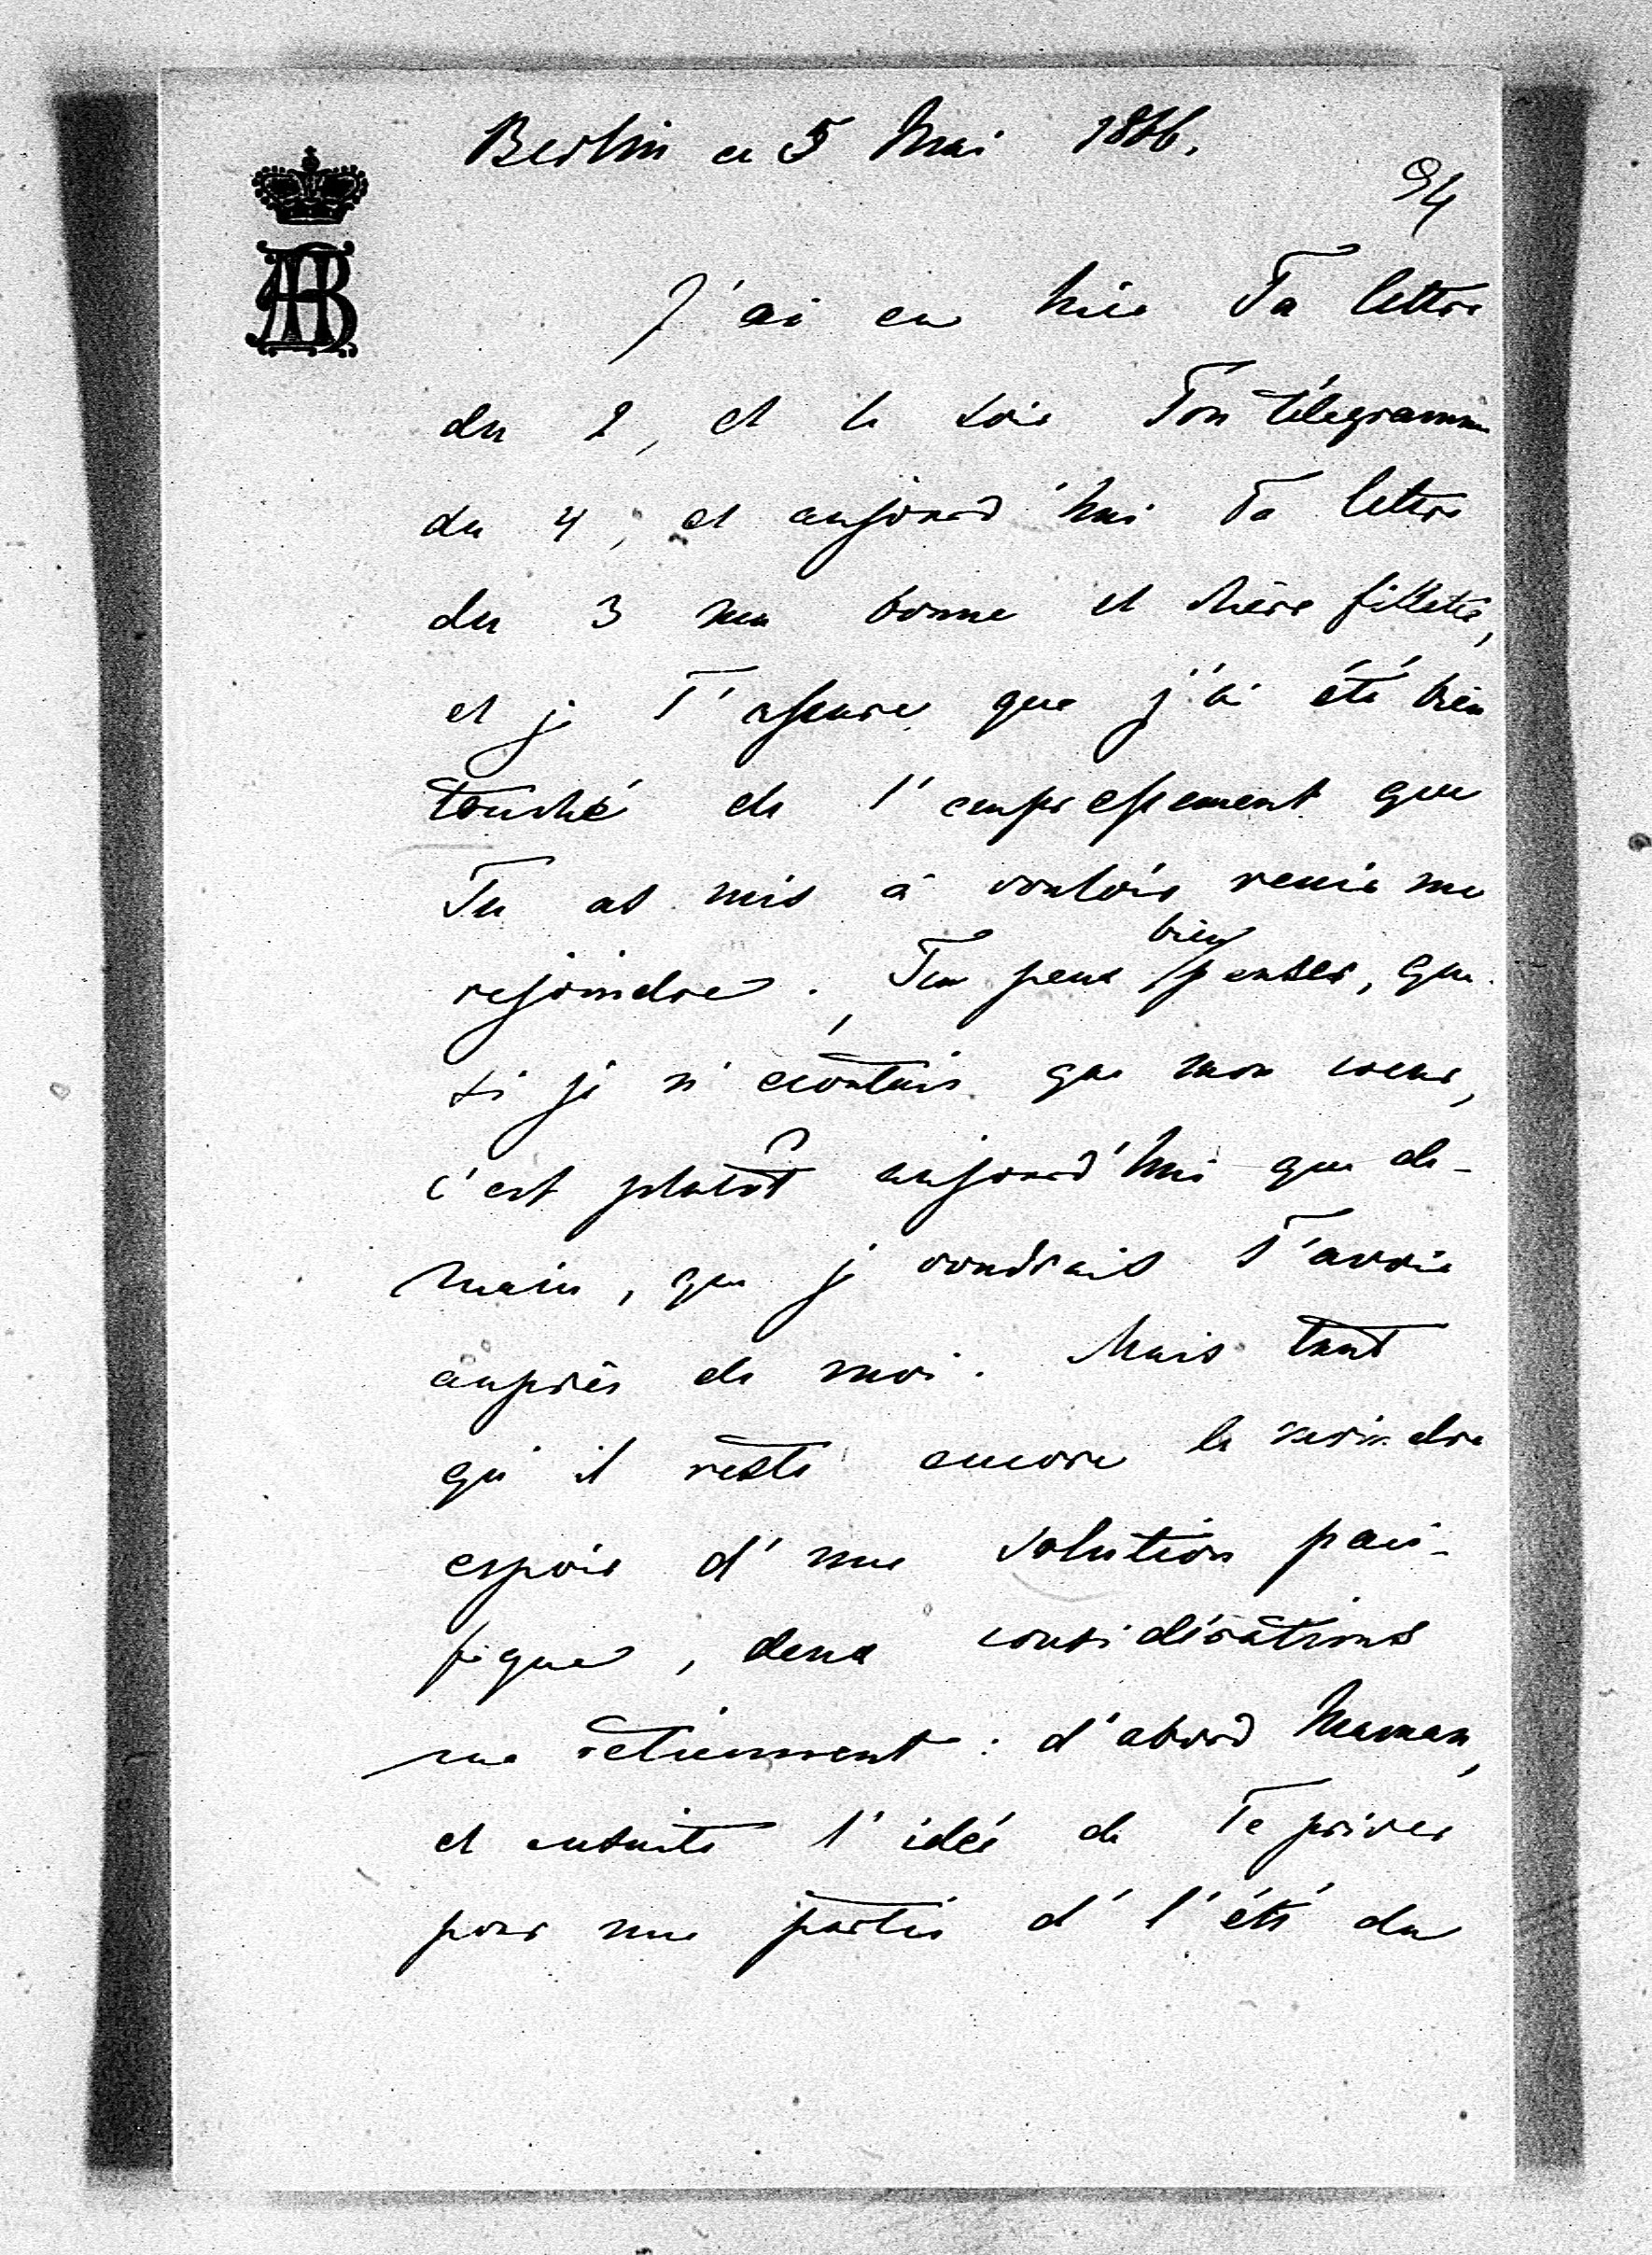 Berlin ce 5 Mai 1866.
94
AB
J'ai eu hier Ta lettre
du 2, et le soir Ton télégramme
du 4, et aujourd'hui Ta lettre
du 3 ma bonne et chère fillette,
et je T'assure que j'ai été bien
touché de l'empressement que
Tu as mis à vouloir venir me
rejoindre. Tu peux bien penser, que
si je n'écoutais que mon coeur,
c'est plutôt aujourd'hui que de-
main, que je voudrais T'avoir
auprès de moi. Mais tant
qu'il reste encore le moindre
espoir d'une solution paci-
fique, deux considérations
me retiennent: d'abord Maman,
et ensuite l'idée de Te priver
pour une partie d l'été du